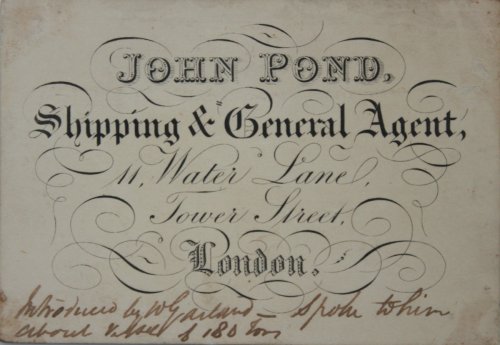 JOHN POND,
Shipping & General Agent,
11, Water Lane,
Tower Street,
London.
Introduced by W Garland – spoke to him
about vessel of 180 Tons